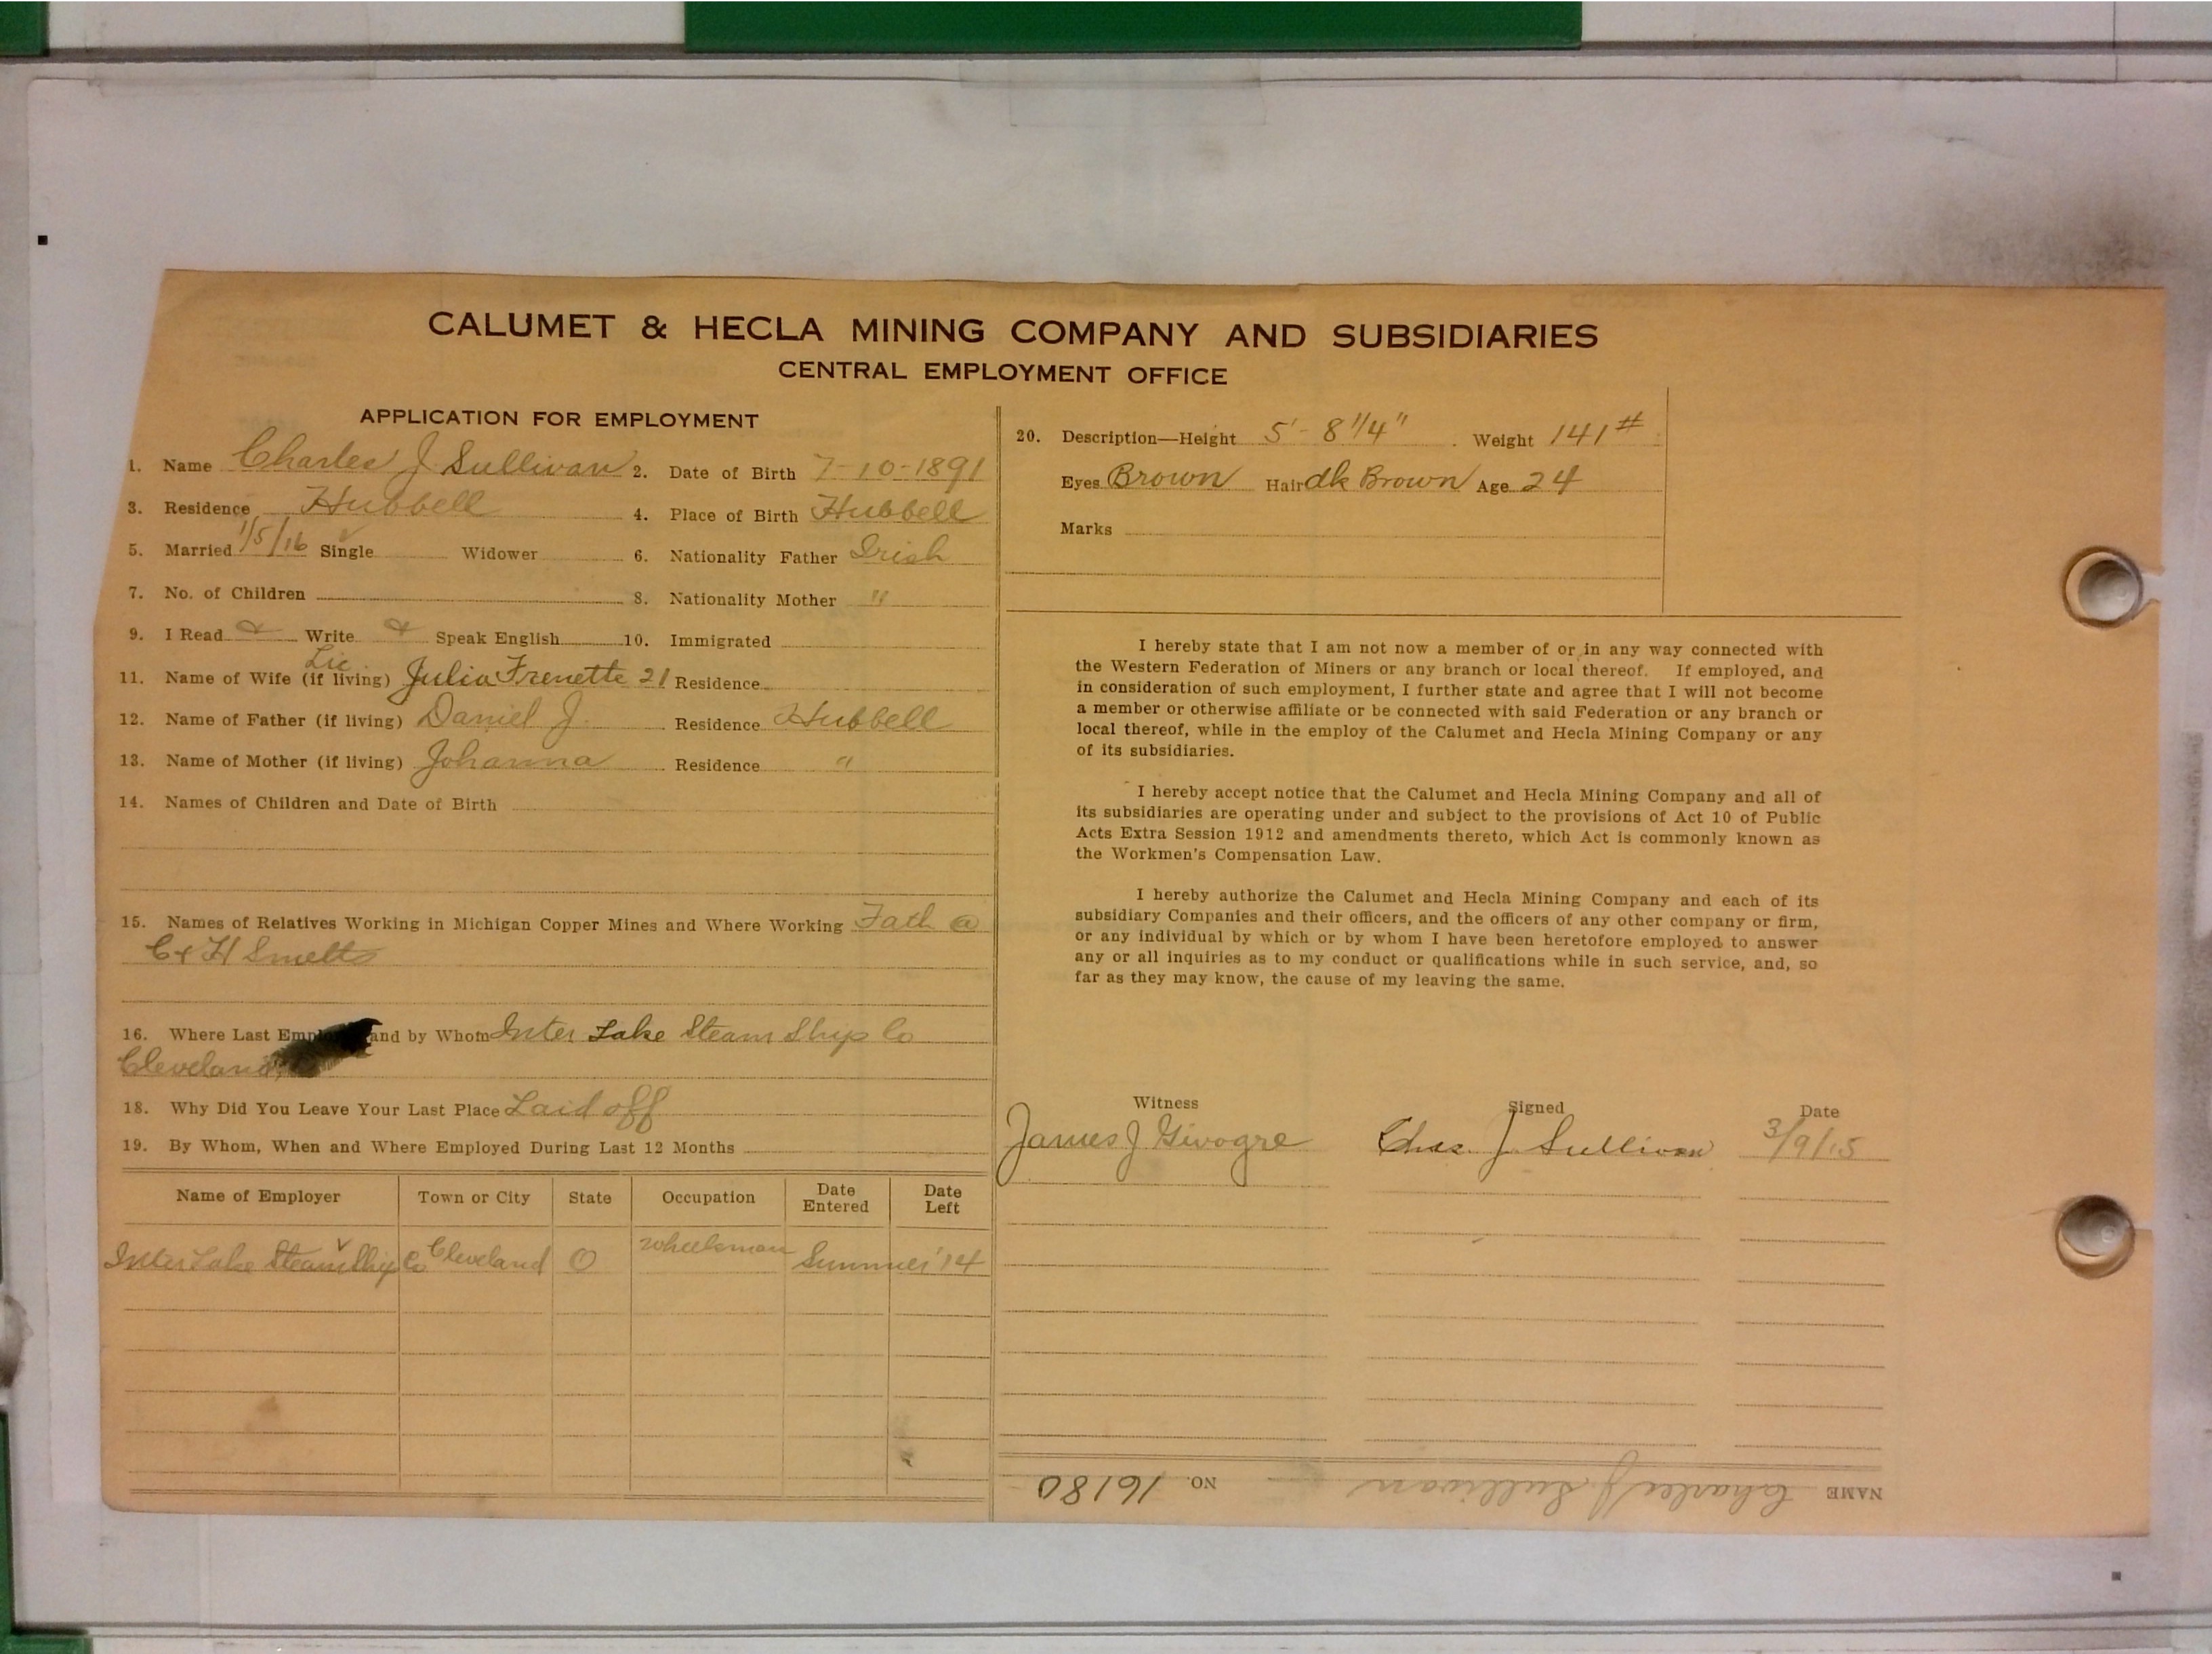 CALUMET & HECLA MINING COMPANY AND SUBSIDIARIES
CENTRAL EMPLOYMENT OFFICE
APPLICATION FOR EMPLOYMENT
1. Name Charles J. Sullivan 2. Date of Birth 7-10-1891
3. Residence Hubbell 4. Place of Birth Hubbell
5. Married 1/5/16 Single ✓ Widower 6. Nationality Father Irish
7. No. of Children 8. Nationality Mother "
9. I Read Write Speak English 10. Immigrated
Lic
11. Name of Wife (if living) Julia Frenette 21 Residence
12. Name of Father (if living) Daniel J. Residence Hubbell
13. Name of Mother (if living) Johanna Residence "
14. Names of Children and Date of Birth
15. Names of Relatives Working in Michigan Copper Mines and Where Working Fath @
C & H Smelts
16. Where Last Emp and by Whom Inter Lake Steam Ship Co
Cleveland
18. Why Did You Leave Your Last Place Laid off
19. By Whom, When and Where Employed During Last 12 Months
Name of Employer Town or City State Occupation Date Entered Date Left
Inter Lake Steam Ship Co Cleveland O Wheelsman Summer '14
20. Description—Height 5'-8 1/4" Weight 141#
Eyes Brown Hair dk Brown Age 24
Marks
I hereby state that I am not now a member of or in any way connected with
the Western Federation of Miners or any branch or local thereof. If employed, and
in consideration of such employment, I further state and agree that I will not become
a member or otherwise affiliate or be connected with said Federation or any branch or
local thereof, while in the employ of the Calumet and Hecla Mining Company or any
of its subsidiaries.
I hereby accept notice that the Calumet and Hecla Mining Company and all of
its subsidiaries are operating under and subject to the provisions of Act 10 of Public
Acts Extra Session 1912 and amendments thereto, which Act is commonly known as
the Workmen's Compensation Law.
I hereby authorize the Calumet and Hecla Mining Company and each of its
subsidiary Companies and their officers, and the officers of any other company or firm,
or any individual by which or by whom I have been heretofore employed to answer
any or all inquiries as to my conduct or qualifications while in such service, and, so
far as they may know, the cause of my leaving the same.
Witness Signed Date
James J Givogre Chas. J. Sullivan 3/9/15
NAME Charles J Sullivan NO. 16180